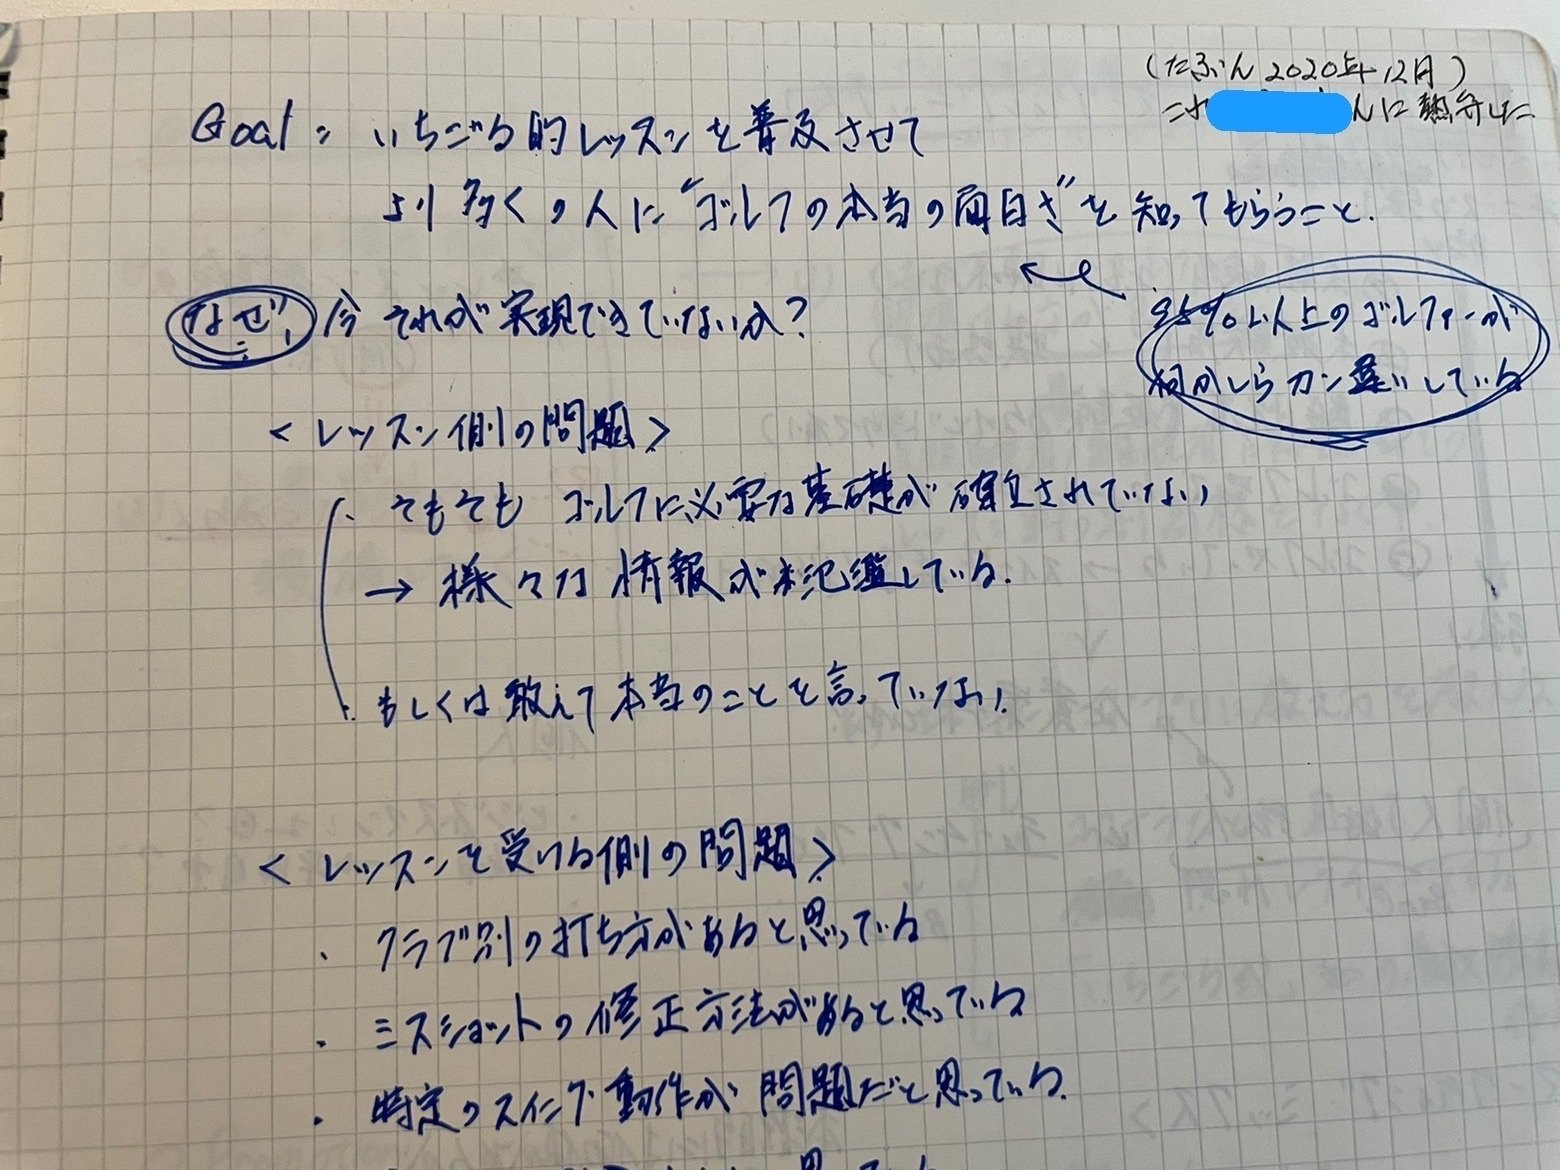 (たぶん 2020年12月)
これ んに熱弁した
Goal: いちごる的レッスンを普及させて
より多くの人に"ゴルフの本当の面白さ"を知ってもらうこと.
なぜ, 今それが実現できていないか?
95%以上のゴルファーが
何かしらカン違いしている
<レッスン側の問題>
・そもそもゴルフに必要な基礎が確立されていない
→ 様々な情報が氾濫している.
・もしくは敢えて本当のことを言っていない.
<レッスンを受ける側の問題>
・クラブ別の打ち方があると思っている
・ミスショットの修正方法があると思っている
・特定のスイング動作が問題だと思っている.
思っている